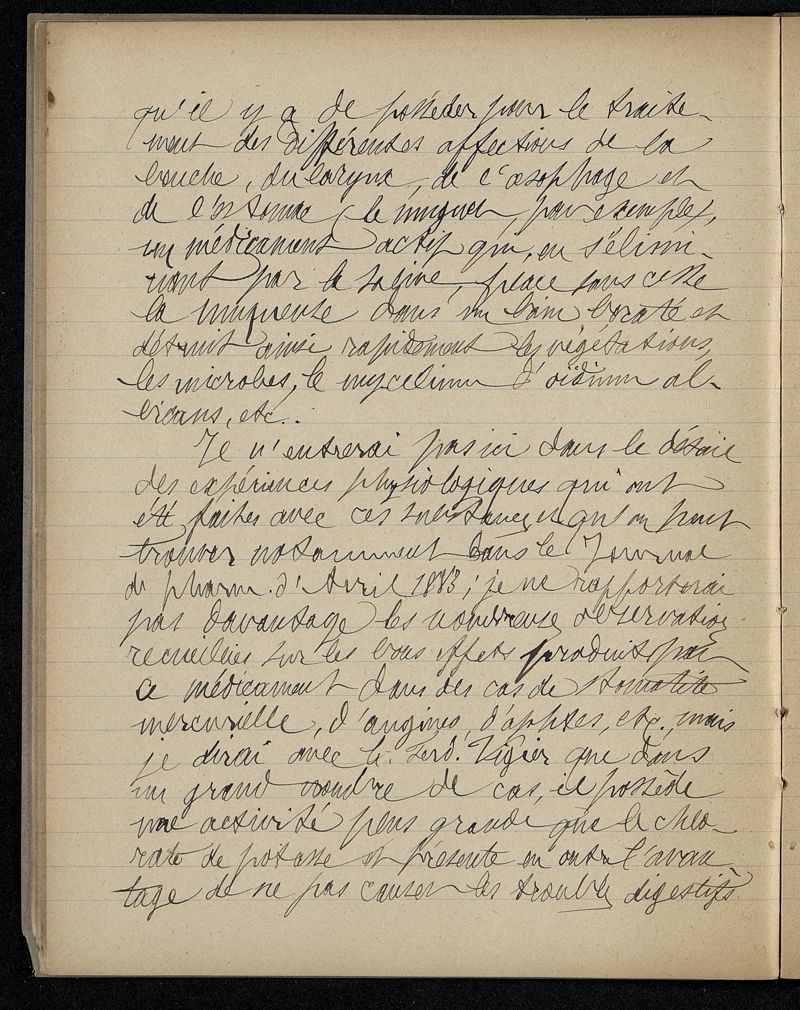 qu'il y a de posséder pour le traite-
ment des différentes affections de la
bouche, du larynx, de l'œsophage et
de l'estomac (le muguet, par exemple),
un médicament actif qui, en s'élimi-
nant par la salive, place sans cesse
la muqueuse dans un bain boraté et
détruit ainsi rapidement les végétations,
les microbes, le mycelium d'oïdium al-
bicans, etc..
Je n'entrerai pas ici dans le détail
des expériences physiologiques qui ont
été faites avec ces substances et qu'on peut
trouver notamment dans le Journal
de pharm. d'Avril 1883; je ne rapporterai
pas davantage les nombreuses observations
recueillies sur les bons effets produits par
ce médicament dans des cas de stomatite
mercurielle, d'angines, d'aphtes, etc., mais
je dirai avec M. Ferd. Vigier que dans
un grand nombre de cas, il possède
une activité plus grande que le chlo-
rate de potasse et présente en outre l'avan
tage de ne pas causer les troubles digestifs